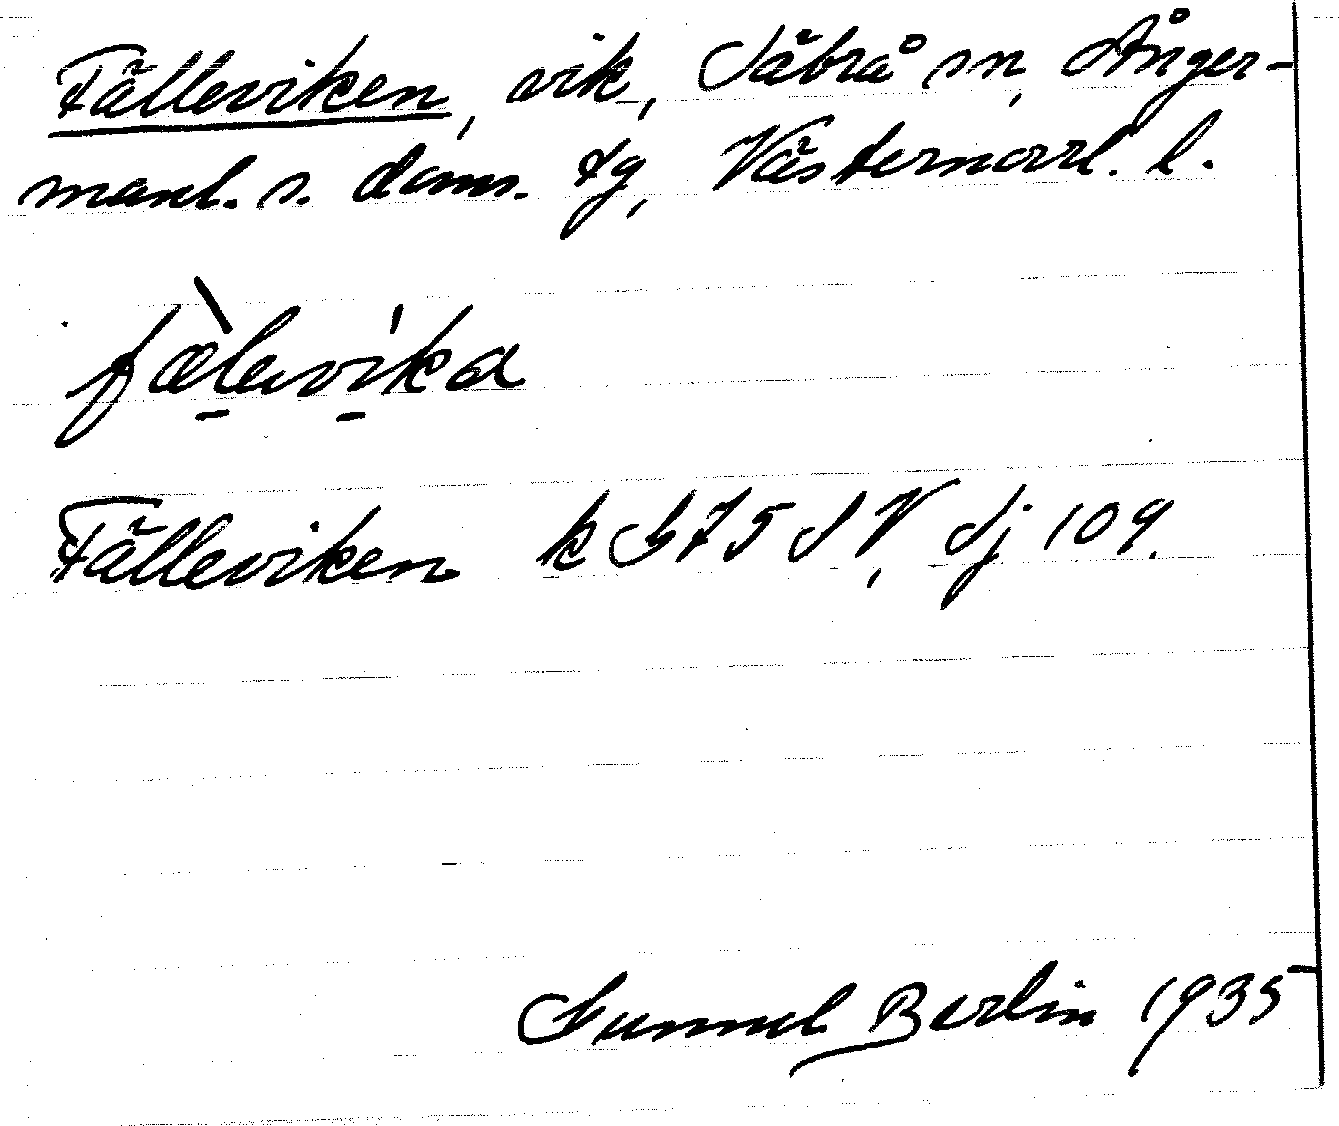 Fälleviken, vik, Säbrå sn, Ånger-
manl. s. doms. tg, Västernorrl. l.
fælevika
Fälleviken k G 75 SV, Sj 109.
Gunnel Berlin 1935